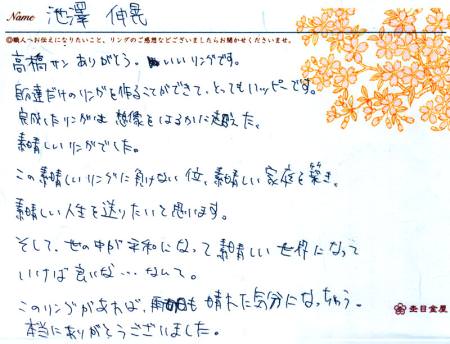 Name 池澤 伸晃
◎職人へお伝えになりたいこと、リングのご感想などございましたらお聞かせくださいませ。
高橋サン ありがとう。 いいリングです。
自分達だけのリングを作ることができて、とってもハッピーです。
完成したリングは 想像をはるかに超えた、
素晴しいリングでした。
この素晴しいリングに負けない位、素晴しい家庭を築き、
素晴しい人生を送りたいと思います。
そして、世の中が平和になって素晴しい世界になって
いけば良いな…なんて。
このリングがあれば、雨の日も晴れた気分になっちゃう。
本当にありがとうございました。
杢目金屋